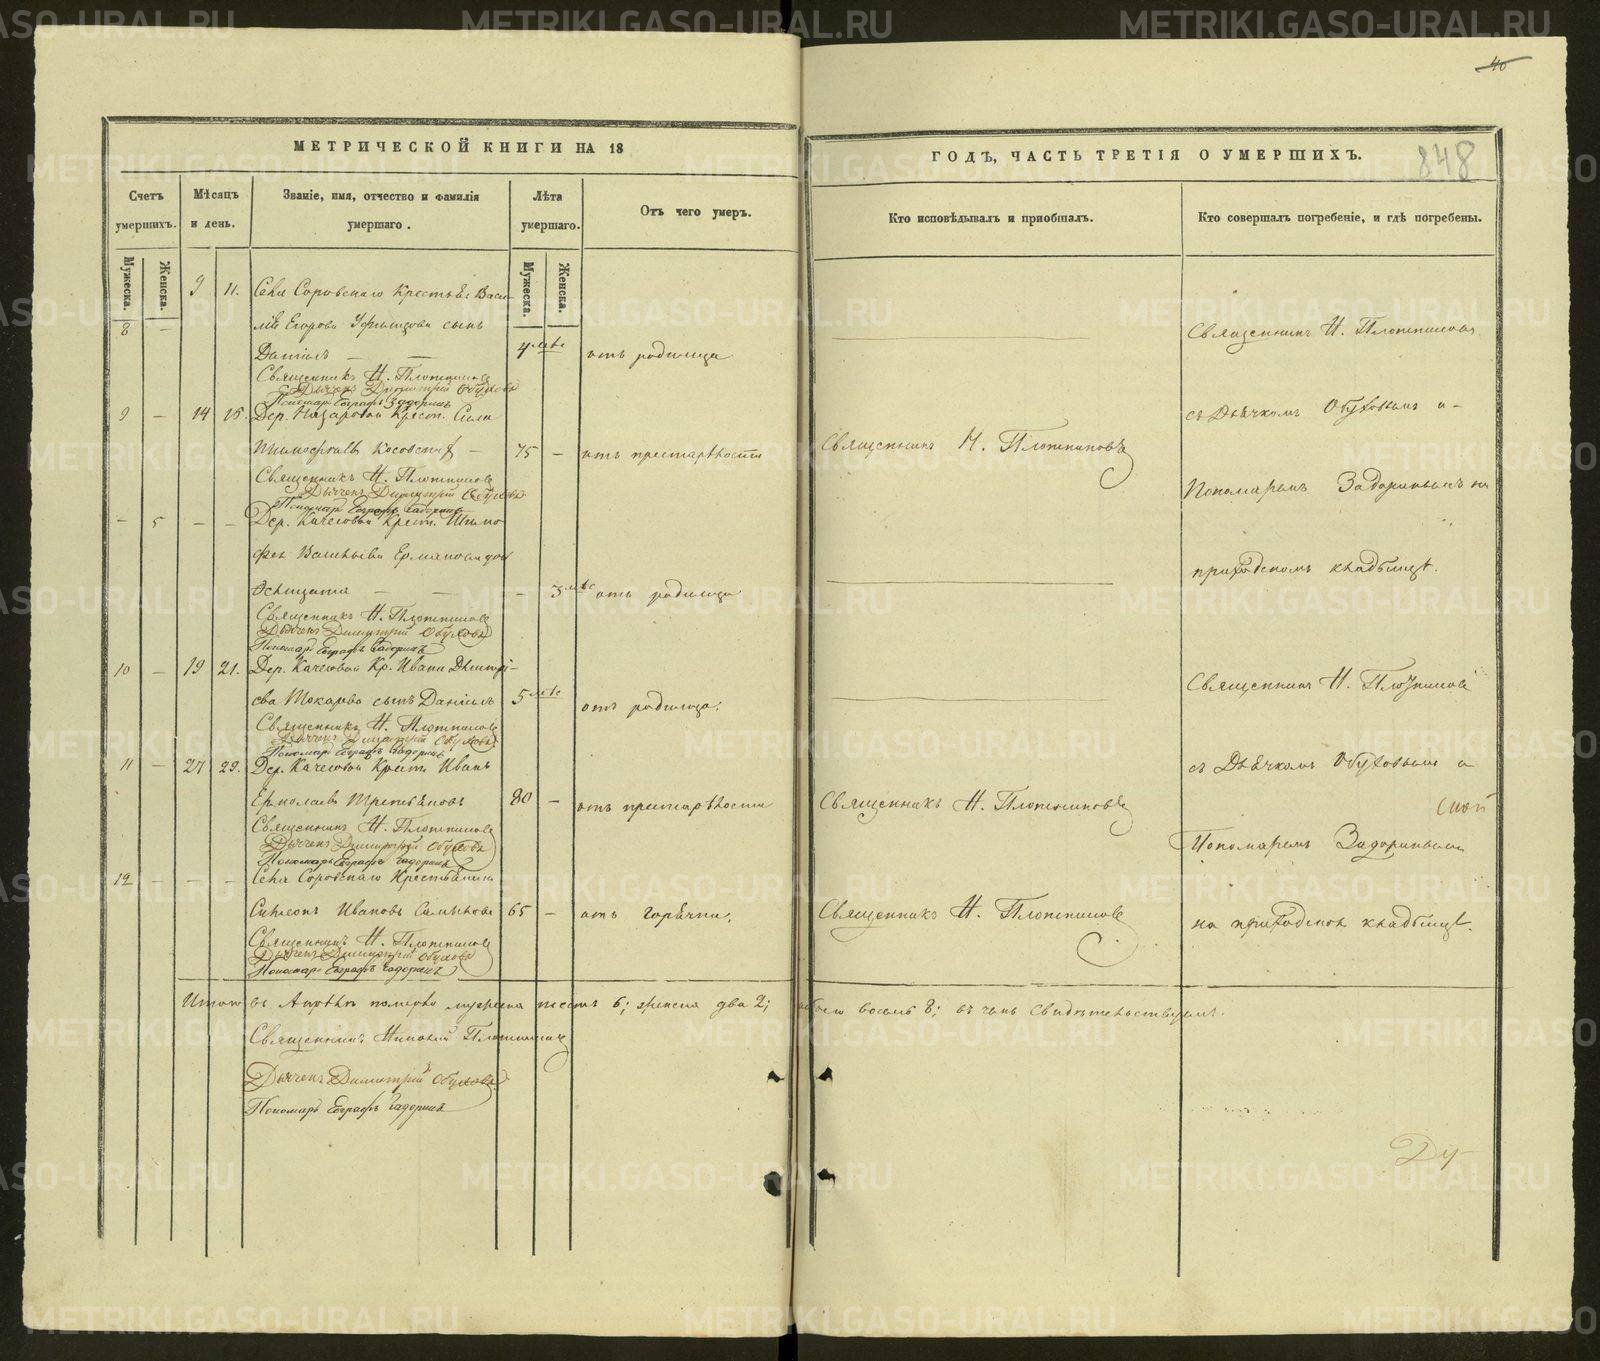 40
848
МЕТРИЧЕСКОЙ КНИГИ НА 18
ГОДЪ, ЧАСТЬ ТРЕТІЯ О УМЕРШИХЪ.
Счетъ умершихъ.
Мѣсяцъ и день.
Званіе, имя, отчество и фамилія умершаго.
Лѣта умершаго.
Отъ чего умеръ.
Кто исповѣдывалъ и пріобщалъ.
Кто совершалъ погребеніе, и гдѣ погребены.
Мужеска. Женска.
Мужеска. Женска.
9 11. Села Соровскаго Крестьян. Васи-
8 — лія Егорова сынъ
Даніилъ — — 4 отъ родимца
Священникъ Н. Плотниковъ
Священникъ Н. Плотниковъ
Дьячекъ Димитрій Обуховъ
Пономарь Евграфъ Задоринъ
9 — 14 15. Дер. Назаровой Крест. Сила
съ Дьячкомъ Обуховымъ и
— 75 — отъ престарѣлости Священникъ Н. Плотниковъ
Священникъ Н. Плотниковъ
Пономаремъ Задоринымъ на
Дьячекъ Димитрій Обуховъ
Пономарь Евграфъ Задоринъ
— 5 — — Дер. Качесовой Крест. Тимо
фея Васильева дочь
приходскомъ кладбищѣ.
— — — 3 отъ родимца
Священникъ Н. Плотниковъ
Дьячекъ Димитрій Обуховъ
Пономарь Евграфъ Задоринъ
10 — 19 21. Дер. Качесовой Кр. Ивана Дмитрі-
Священникъ Н. Плотниковъ
ева Токарева сынъ Даніилъ 5 отъ родимца.
Священникъ Н. Плотниковъ
Дьячекъ Димитрій Обуховъ
Пономарь Евграфъ Задоринъ
11 — 27 29. Дер. Качесовой Крест. Иванъ
съ Дьячкомъ Обуховымъ и
Ермолаевъ Третьяковъ 80 — отъ престарѣлости Священникъ Н. Плотниковъ
Священникъ Н. Плотниковъ
Дьячекъ Димитрій Обуховъ
Пономаремъ Задоринымъ
Пономарь Евграфъ Задоринъ
12 — — — Села Соровскаго Крестьянинъ
Симеонъ Ивановъ 65 — отъ горячки. Священникъ Н. Плотниковъ
на приходскомъ кладбищѣ.
Священникъ Н. Плотниковъ
Дьячекъ Димитрій Обуховъ
Пономарь Евграфъ Задоринъ
Итого въ Апрѣлѣ померло мужеска шесть 6; женска два 2; обоего восемь 8; въ чемъ свидѣтельствуемъ.
Священникъ Плотниковъ
Дьячекъ Димитрій Обуховъ
Пономарь Евграфъ Задоринъ
METRIKI.GASO-URAL.RU